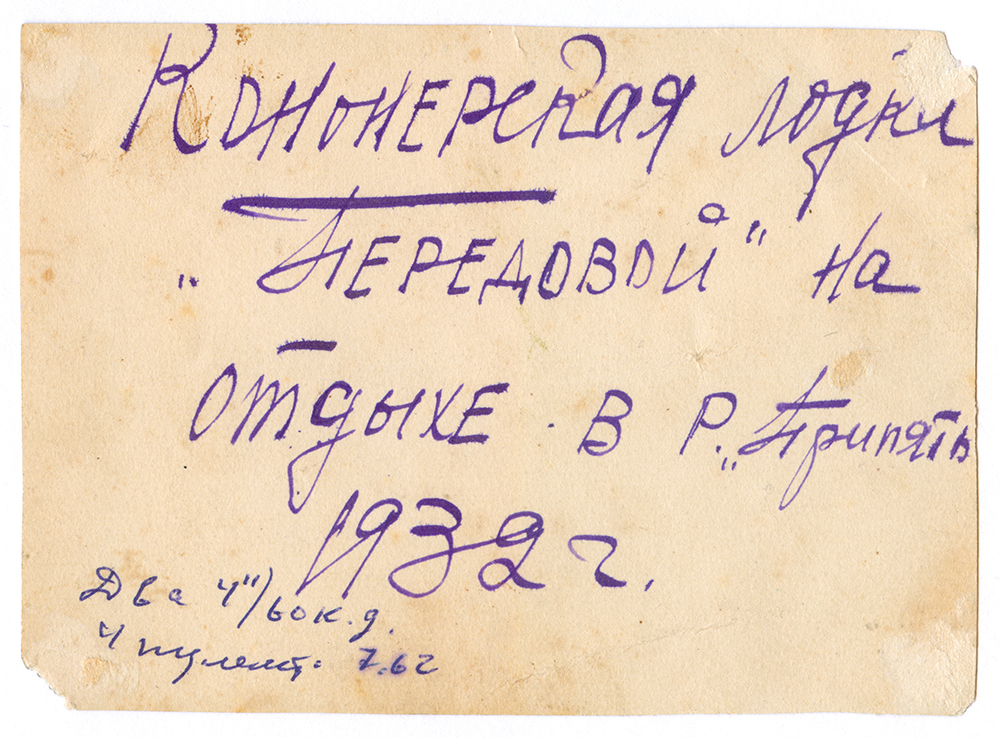 Кононерская лодка
„Передовой" на
отдыхе в р. „Припять
1932 г.
Два 4"/60 к.д.
4 пулемт. 7.62